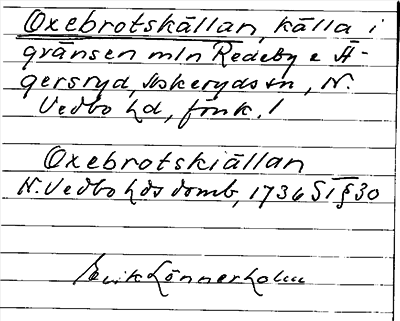 Oxebrotskällan, källa i
gränsen mln Redeby o Å-
gersryd, Askeryds sn, N.
Vedbo hd, Jönk. l
Oxebrotskiällan
N. Vedbo hds domb, 1736 ST § 30
Erik Lönnerholm